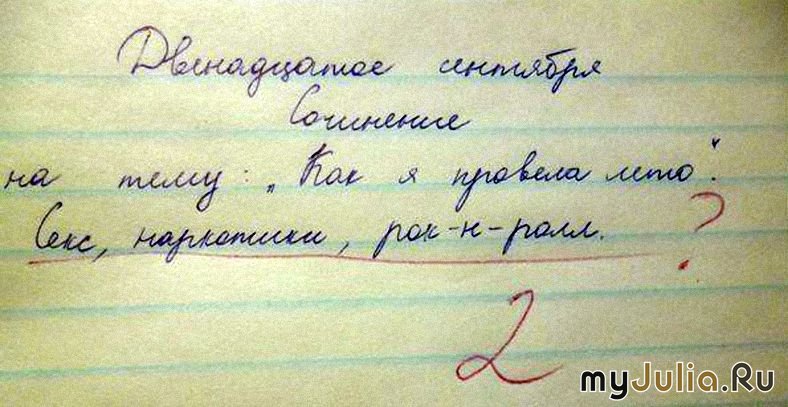 Двенадцатое сентября
Сочинение
на тему: „Как я провела лето".
Секс, наркотики, рок-н-ролл. ?
2
myJulia.Ru